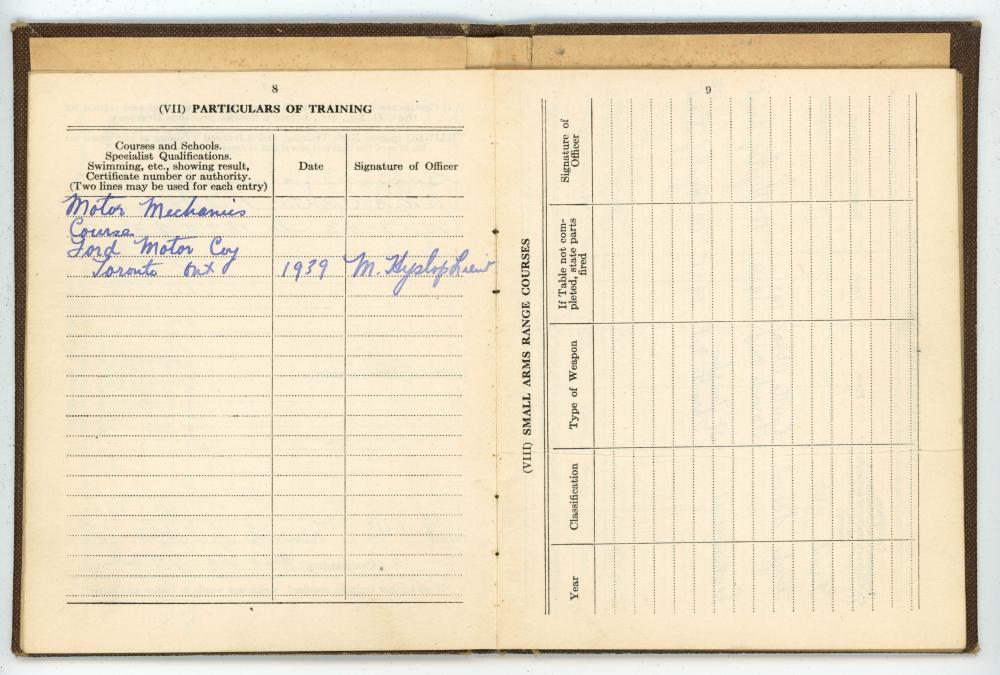 8
(VII) PARTICULARS OF TRAINING
Courses and Schools.
Specialist Qualifications.
Swimming, etc., showing result,
Certificate number or authority.
(Two lines may be used for each entry)
Date
Signature of Officer
Motor Mechanics
Course
Ford Motor Coy
Toronto Ont 1939 M. Hyslop Lieut
9
(VIII) SMALL ARMS RANGE COURSES
Signature of
Officer
If Table not com-
pleted, state parts
fired
Type of Weapon
Classification
Year